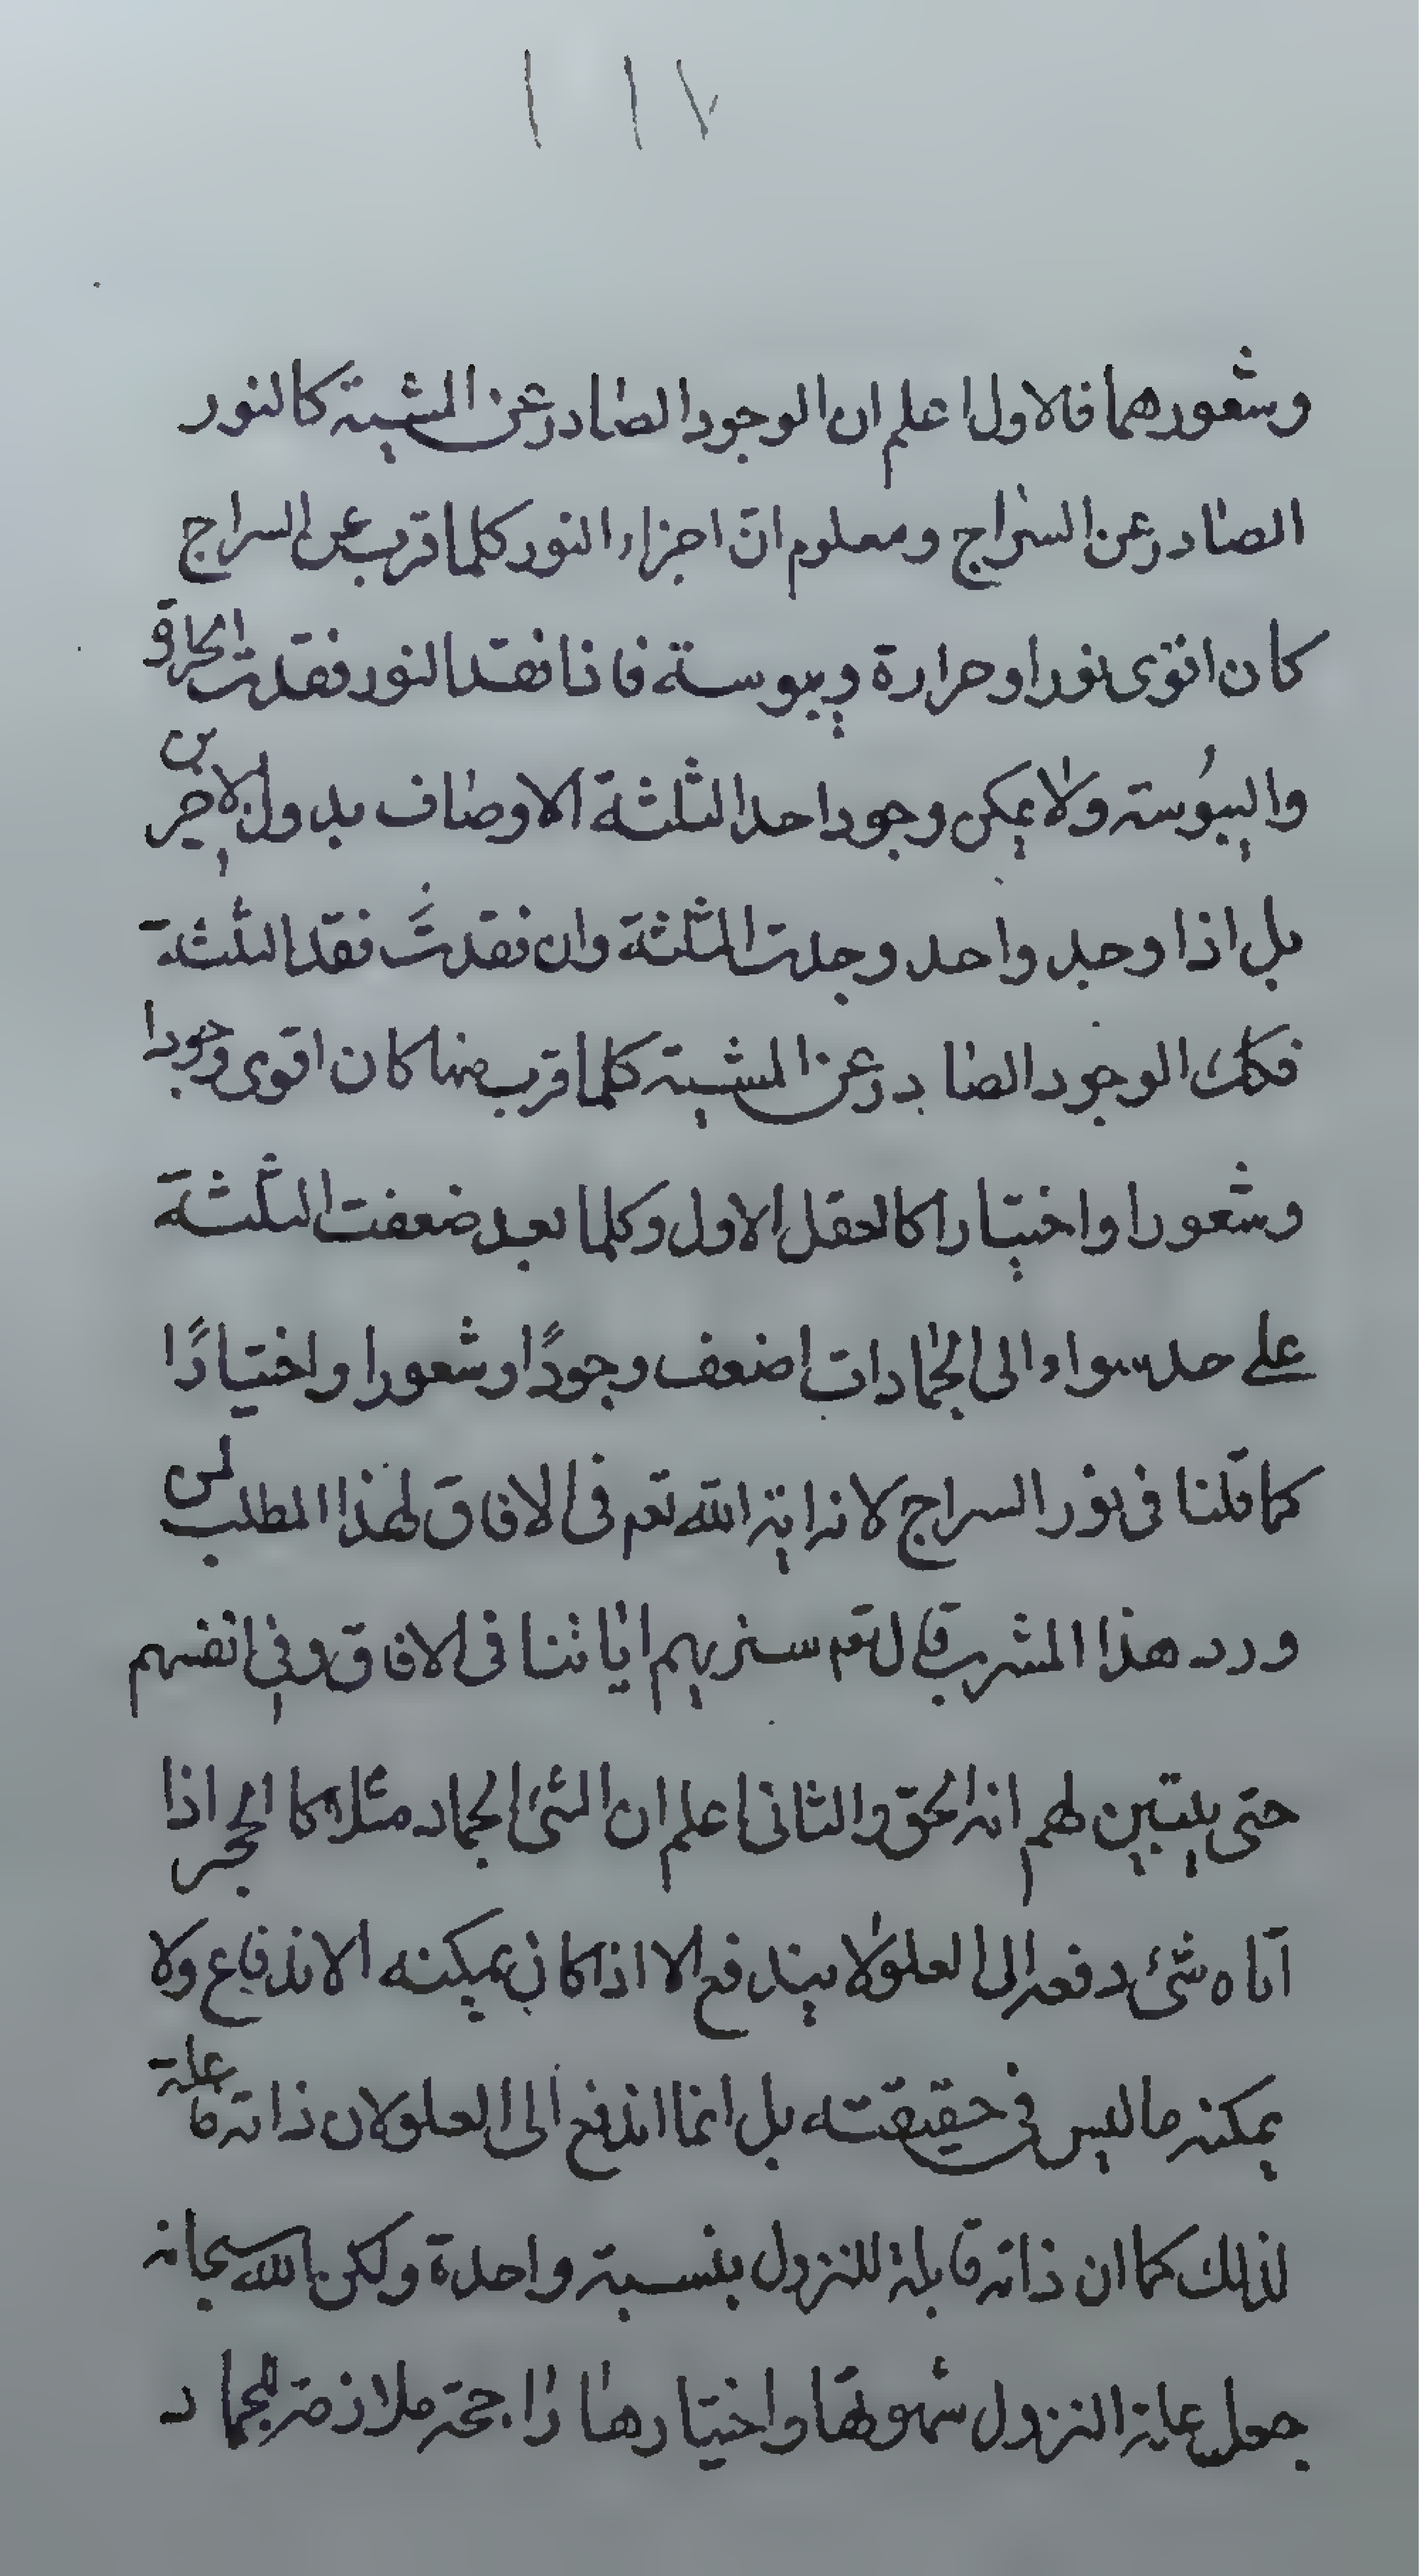 ١١٧
وشعورهما فالاول اعلم ان الوجود الصادر عن المشية كالنور
الصادر عن السراج ومعلوم انّ اجزاء النور كلما قرب من السراج
كان اقوى نورا وحرارة ويبوسة فاذا فقد النور فقدت الحرارة
واليبُوسة ولا يمكن وجود احد الثلثة الاوصاف بدون الاخرين
بل اذا وجد واحد وجدت الثلثة وان فقدت فقد الثلثة
فكك الوجود الصادر عن المشية كلما قرب منها كان اقوى وجودا
وشعورا واختيارا كالعقل الاول وكلما بعد ضعفت الثلثة
على حد سواء الى الجمادات اضعف وجودًا وشعورا واختيارًا
كما قلنا فى نور السراج لانه اية الله تعم فى الافاق لهذا المطلب لمن
ورد هذا المشرب قال تعم سنريهم اياتنا فى الافاق وفى انفسهم
حتى يتبين لهم انه الحق والثانى اعلم ان الشئ الجماد مثلا كالحجر اذا
اتاه شئ دفعه الى العلو لا يندفع الا اذا كان يمكنه الاندفاع ولا
يمكنه ما ليس فى حقيقته بل انما اندفع الى العلو لان ذاته قابلة
لذلك كما ان ذاته قابلة للنزول بنسبة واحدة ولكن الله سبحانه
جعل علة النزول شهوتها واختيارها راجحة ملازمة للجماد